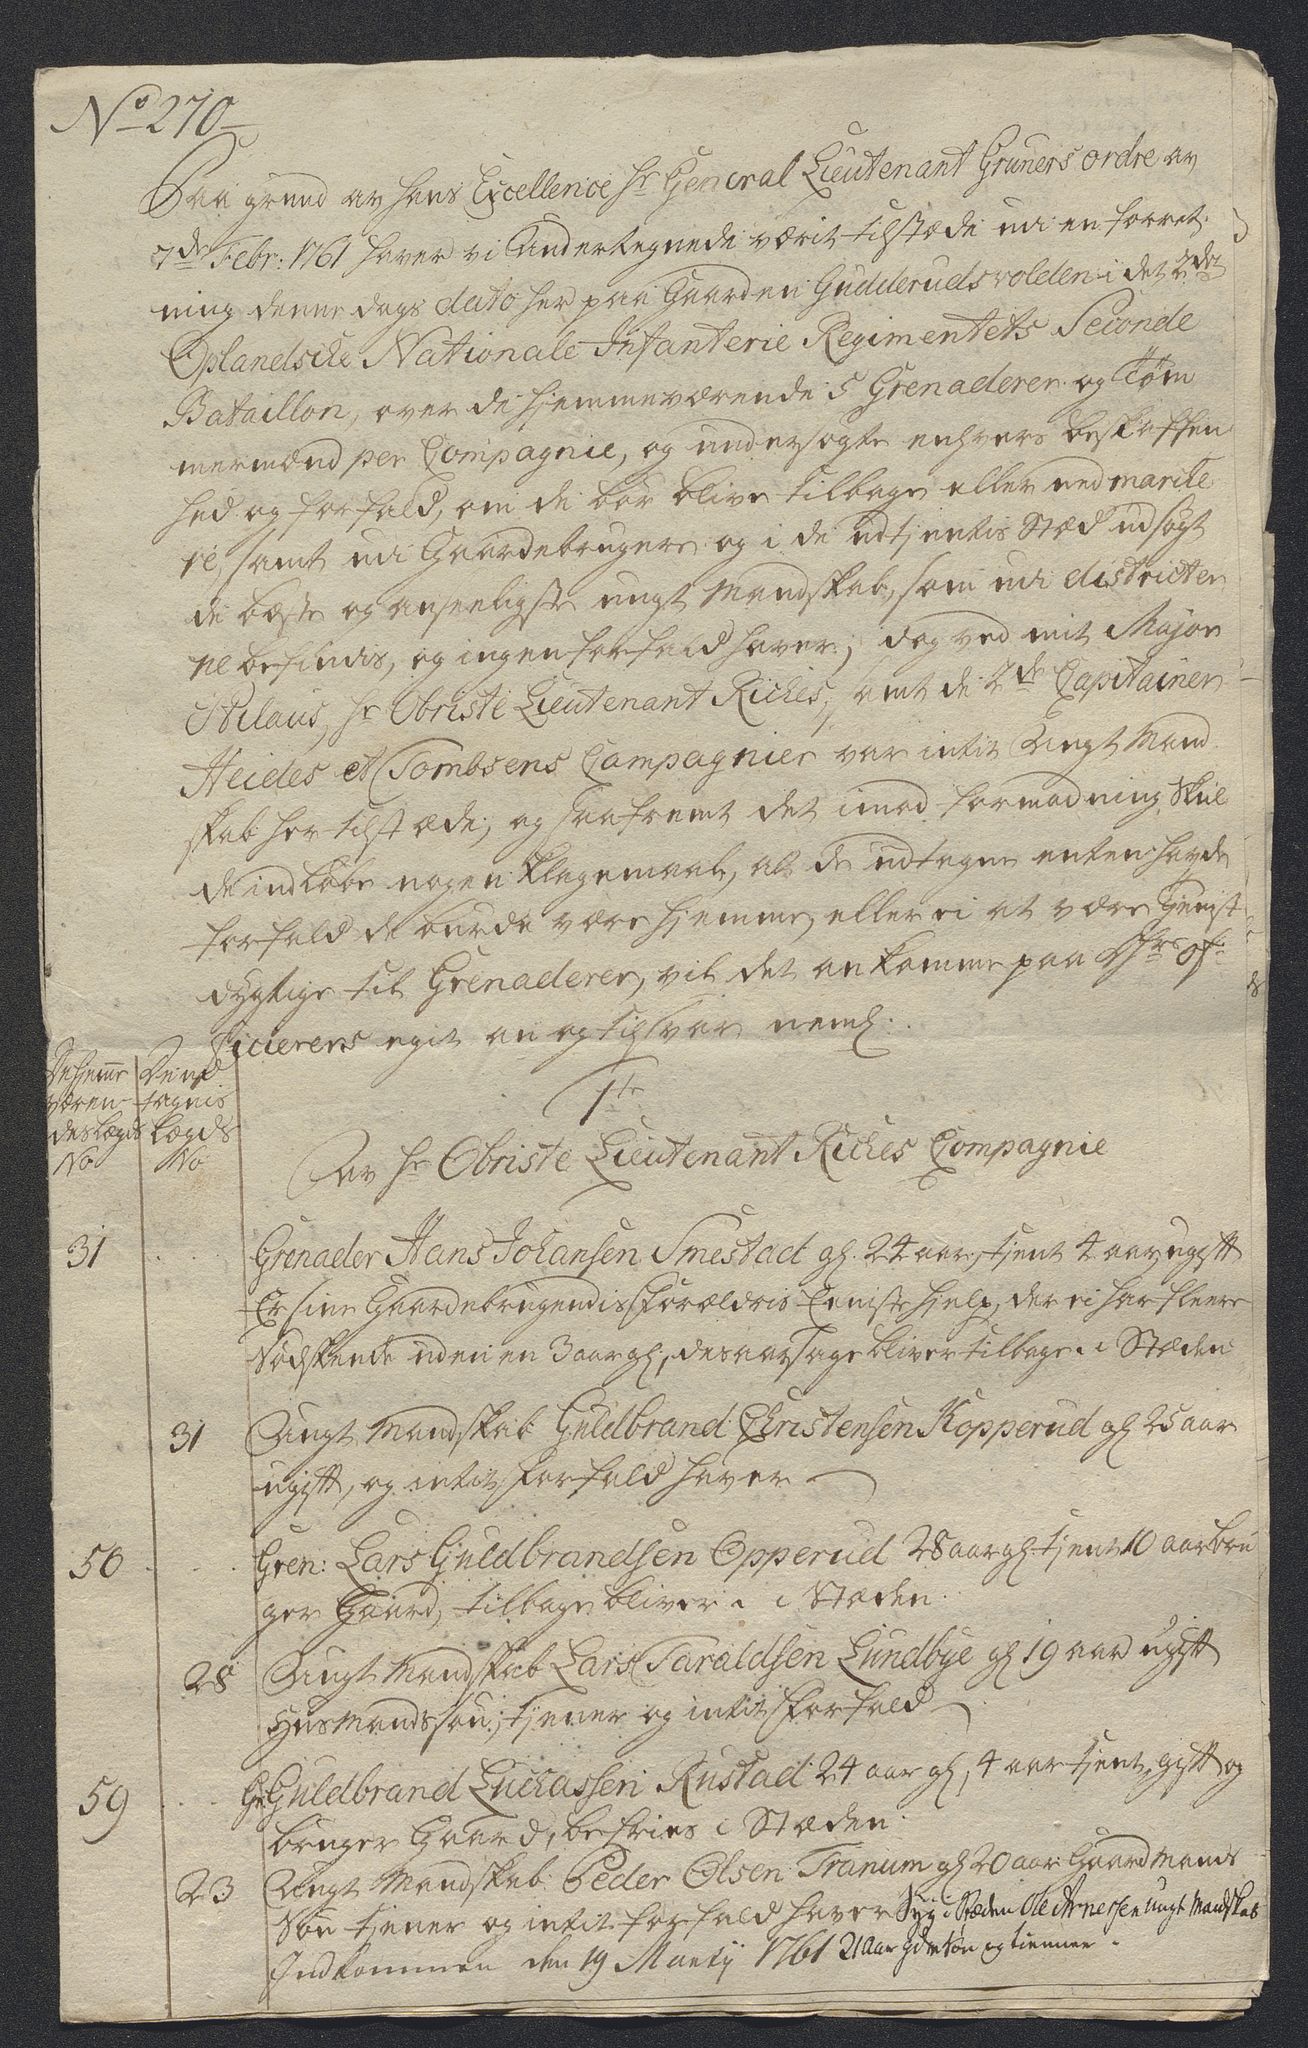 No 270
Paa grund av hans Excellence Hr General Lieutenant Gruners ordre av
7de Febr: 1761 haver vi Undertegnede værit tilstæde udi en forret-
ning denne dags dato her paa Gaarden Gudderudsvolden i det 2det
Oplandske Nationale Infanterie Regimentets Seconde
Bataillon, over de hjemmeværende 5 Grenaderer og Tøm
mermænd per Compagnie, og undersøgte enhvers beskaffen
hed og forfald, om de bør blive tilbage eller ud marche
re, samt udi Gaardebrugere og i de udtjentis Stæd udsøgt
de bæste og anseeligste ungt Mandskab, som udi districter
ne befindis, og ingen forfald haver; dog ved mit Major
Nilaus, Hr Obriste Lieutenant Riches, samt de 2de Capitainer
Heides et Tombsens Compagnier var intit Ungt Mand
skab her tilstæde, og saafremt det imod formodning Skul
de indløbe nogen Klagemaal, at de udtagne enten havde
forfald de burde være hjemme, eller ei at være tjenst
dygtige til Grenaderer, vil det ankomme paa Hr of-
ficierens egit an og tilsvar neml:
De hjemme
væren-
des Lægds
No
De ud
tagnis
Lægds
No
1te
Av Hr Obriste Lieutenant Riches Compagnie
31 Grenader Hans Johansen Smestad gl: 24 aar, tjent 4 aar, ugift
Er sine Gaardebrugendis Forældris Eeniste hjelp, der ei har fleere
Sødskende uden en 3 aar gl:, desaarsage bliver tilbage i Stæden
31 Ungt Mandskab Guldbrand Christensen Kopperud gl 25 aar
ugift, og intit forfald haver
50 Gren: Lars Guldbrandsen Opperud 28 aar gl tjent 10 aar bru
ger Gaard, tilbage bliver i Stæden
28 Ungt Mandskab Lars Taraldsen Lundbye gl 19 aar ugift
Husmands søn, tjener og intit Forfald
59 Gr: Guldbrand Luchassen Rustad 24 aar gl, 4 aar tjent, gift og
bruger Gaard, befries i Stæden
23 Ungt Mandskab Peder Olsen Tranum gl 20 aar Gaard Mands
Søn tjener og intit forfald haver Syg i Stæden Ole Arnessen ungt Mandskab
Indkommen den 19 Martij 1761 21 aar gdm Søn og tienner